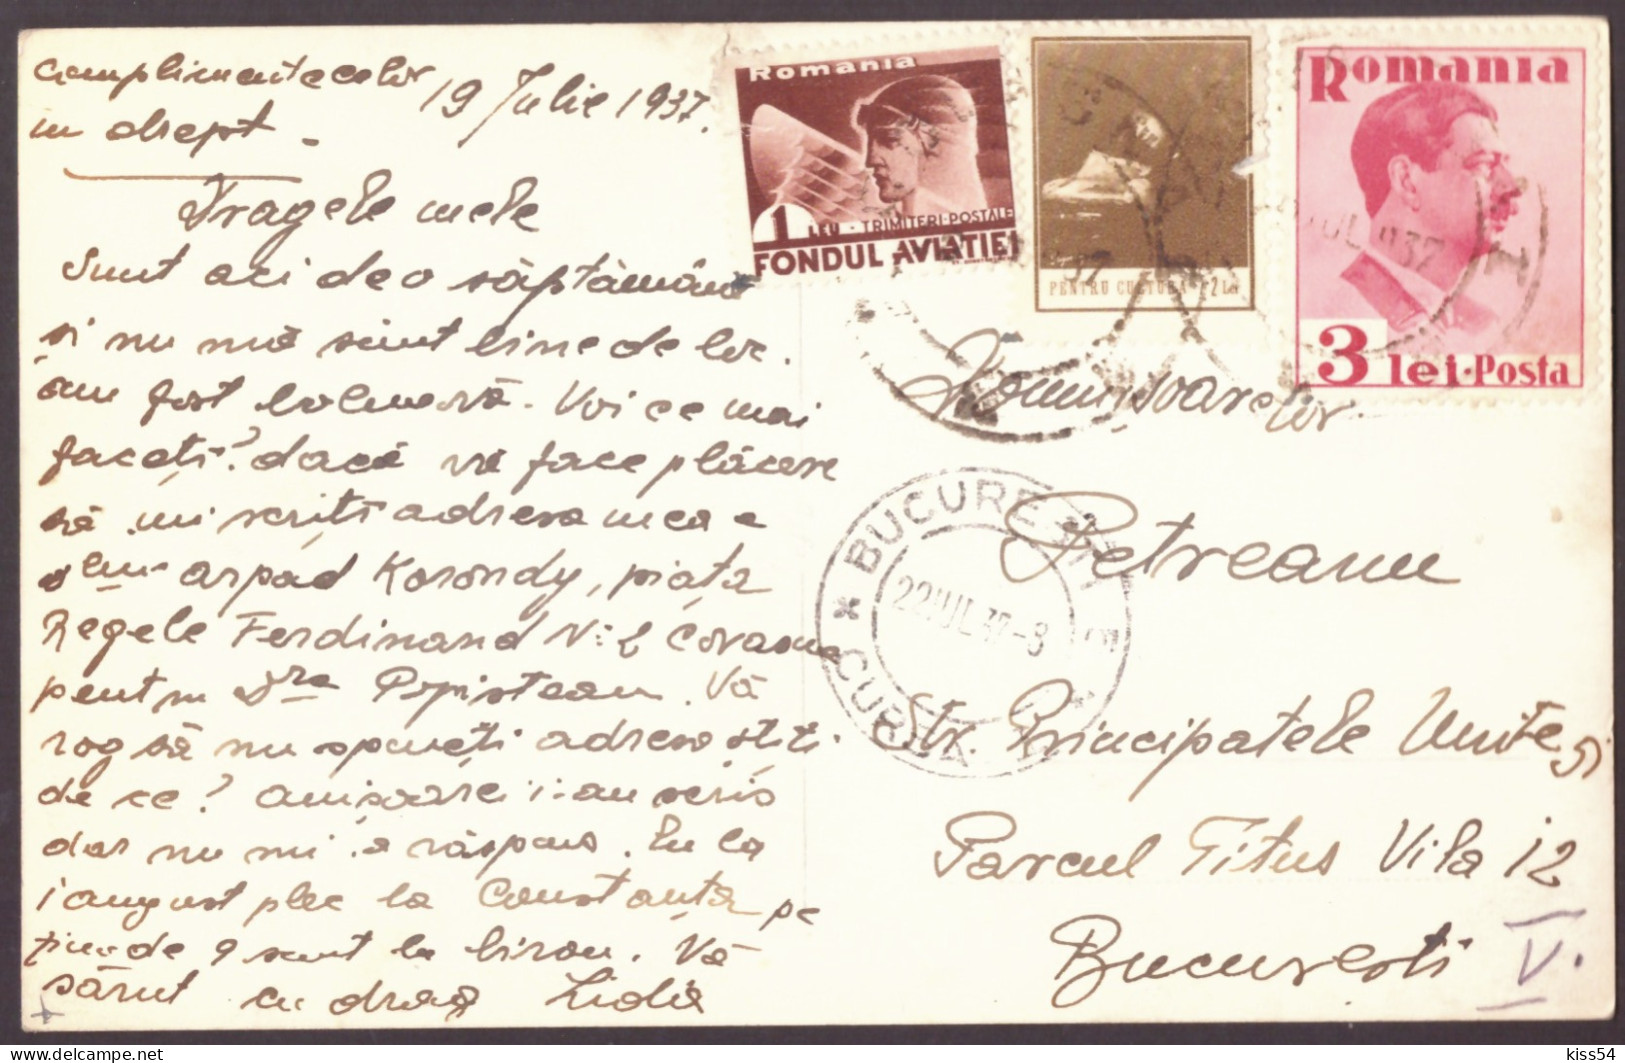 complimente celor
in drept -
19 Iulie 1937.
Dragele mele
Sunt aci de o săptămână
și nu mă simt bine de loc.
am fost bolnavă. Voi ce mai
faceți? dacă vă face plăcere
să mi scriți adresa mea e
arpad Korondy, piața
Regele Ferdinand No 2 Covasna
pentru Dra Popișteanu. Vă
rog să nu spuneți adresa
de ce? anișoarei i-am scris
dar nu mi a răspuns. Eu la
1 august plec la Constanța pe
9 sunt la birou. Vă
sărut cu drag Lidia
Romania
1 LEU - TRIMITERI-POSTALE
FONDUL AVIATIEI
PENTRU CULTURA 2 LEI
ROMANIA
3 lei·Posta
Domnișoarelor
BUCUREȘTI
22 IUL 37-8
CURSA
Petreanu
Str. Principatele Unite 91
Parcul Titus Vila 12
București V.
delcampe.net
kiss54